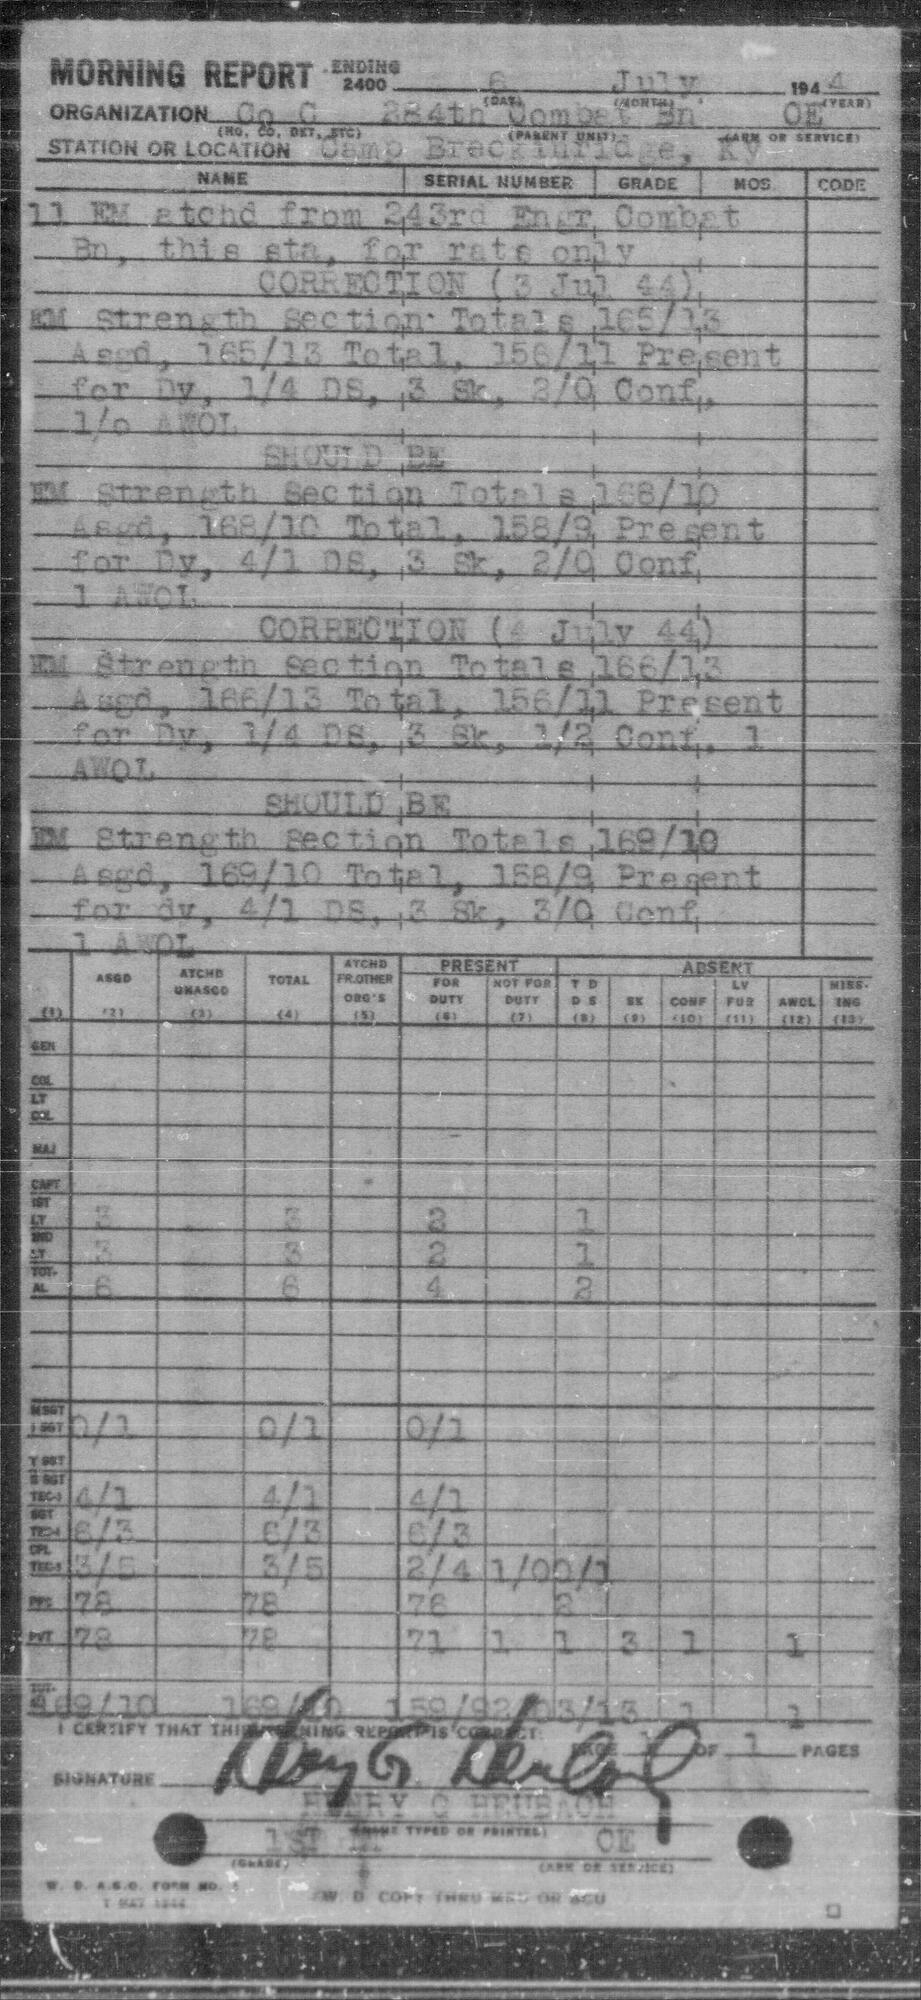 MORNING REPORT ENDING 2400 6 July 1944
(DAY) (MONTH) (YEAR)
ORGANIZATION Co C 284th Combat Bn CE
(HQ, CO, DET, ETC) (PARENT UNIT) (ARM OR SERVICE)
STATION OR LOCATION Camp Breckinridge, Ky
NAME SERIAL NUMBER GRADE MOS CODE
11 EM atchd from 243rd Engr Combat
Bn, this sta, for rats only
CORRECTION (3 Jul 44)
EM Strength Section Totals 165/13
Asgd, 165/13 Total, 156/11 Present
for Dy, 1/4 DS, 3 Sk, 2/0 Conf,
1/o AWOL
SHOULD BE
EM Strength Section Totals 168/10
Asgd, 168/10 Total, 158/9 Present
for Dy, 4/1 DS, 3 Sk, 2/0 Conf
1 AWOL
CORRECTION (4 July 44)
EM Strength Section Totals 166/13
Asgd, 166/13 Total, 156/11 Present
for Dy, 1/4 DS, 3 Sk, 1/2 Conf, 1
AWOL
SHOULD BE
EM Strength Section Totals 169/10
Asgd, 169/10 Total, 158/9 Present
for dy, 4/1 DS, 3 Sk, 3/0 Conf
1 AWOL
PRESENT ABSENT
ASGD ATCHD UNASGD TOTAL ATCHD FR.OTHER ORG'S FOR DUTY NOT FOR DUTY T D D S SK CONF LV FUR AWOL MISS-ING
(1) (2) (3) (4) (5) (6) (7) (8) (9) (10) (11) (12) (13)
GEN
COL
LT COL
MAJ
CAPT
1ST LT 3 3 2 1
2ND LT 3 3 2 1
TOT-AL 6 6 4 2
M SGT
1 SGT 0/1 0/1 0/1
T SGT
S SGT
TEC-3 4/1 4/1 4/1
SGT
TEC-4 6/3 6/3 6/3
CPL
TEC-5 3/5 3/5 2/4 1/0 0/1
PFC 78 78 76 2
PVT 78 78 71 1 1 3 1 1
TOT-AL 169/10 169/10 159/9 2/0 3/1 3 1 1
I CERTIFY THAT THIS MORNING REPORT IS CORRECT:
PAGE 1 OF 1 PAGES
SIGNATURE Henry G Heubach
HENRY G HEUBACH
(NAME TYPED OR PRINTED)
1ST LT CE
(GRADE) (ARM OR SERVICE)
W. D. A.G.O. FORM NO. 1
1 MAY 1944
W. D. COPY THRU MRU OR SCU